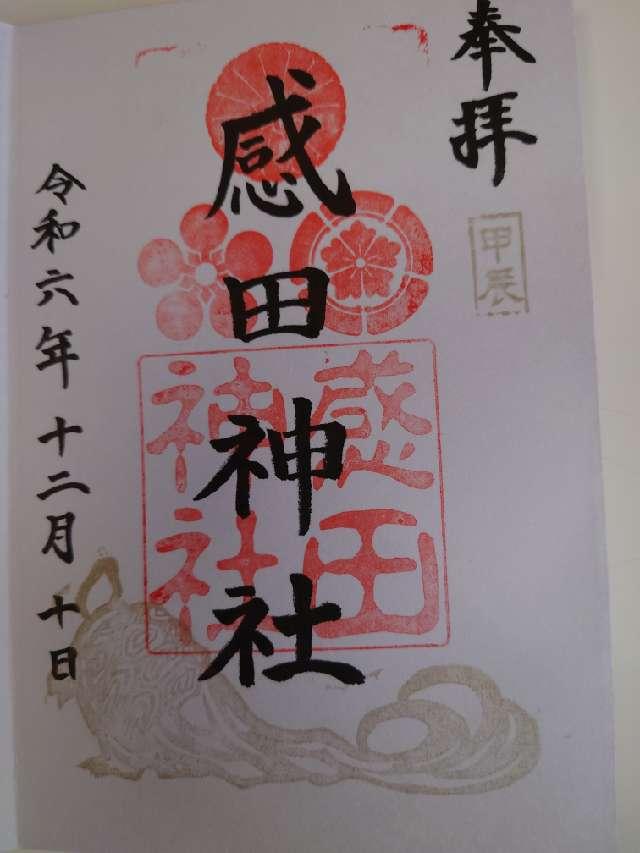 奉拝
甲辰
感田神社
感田
神社
令和六年十二月十日